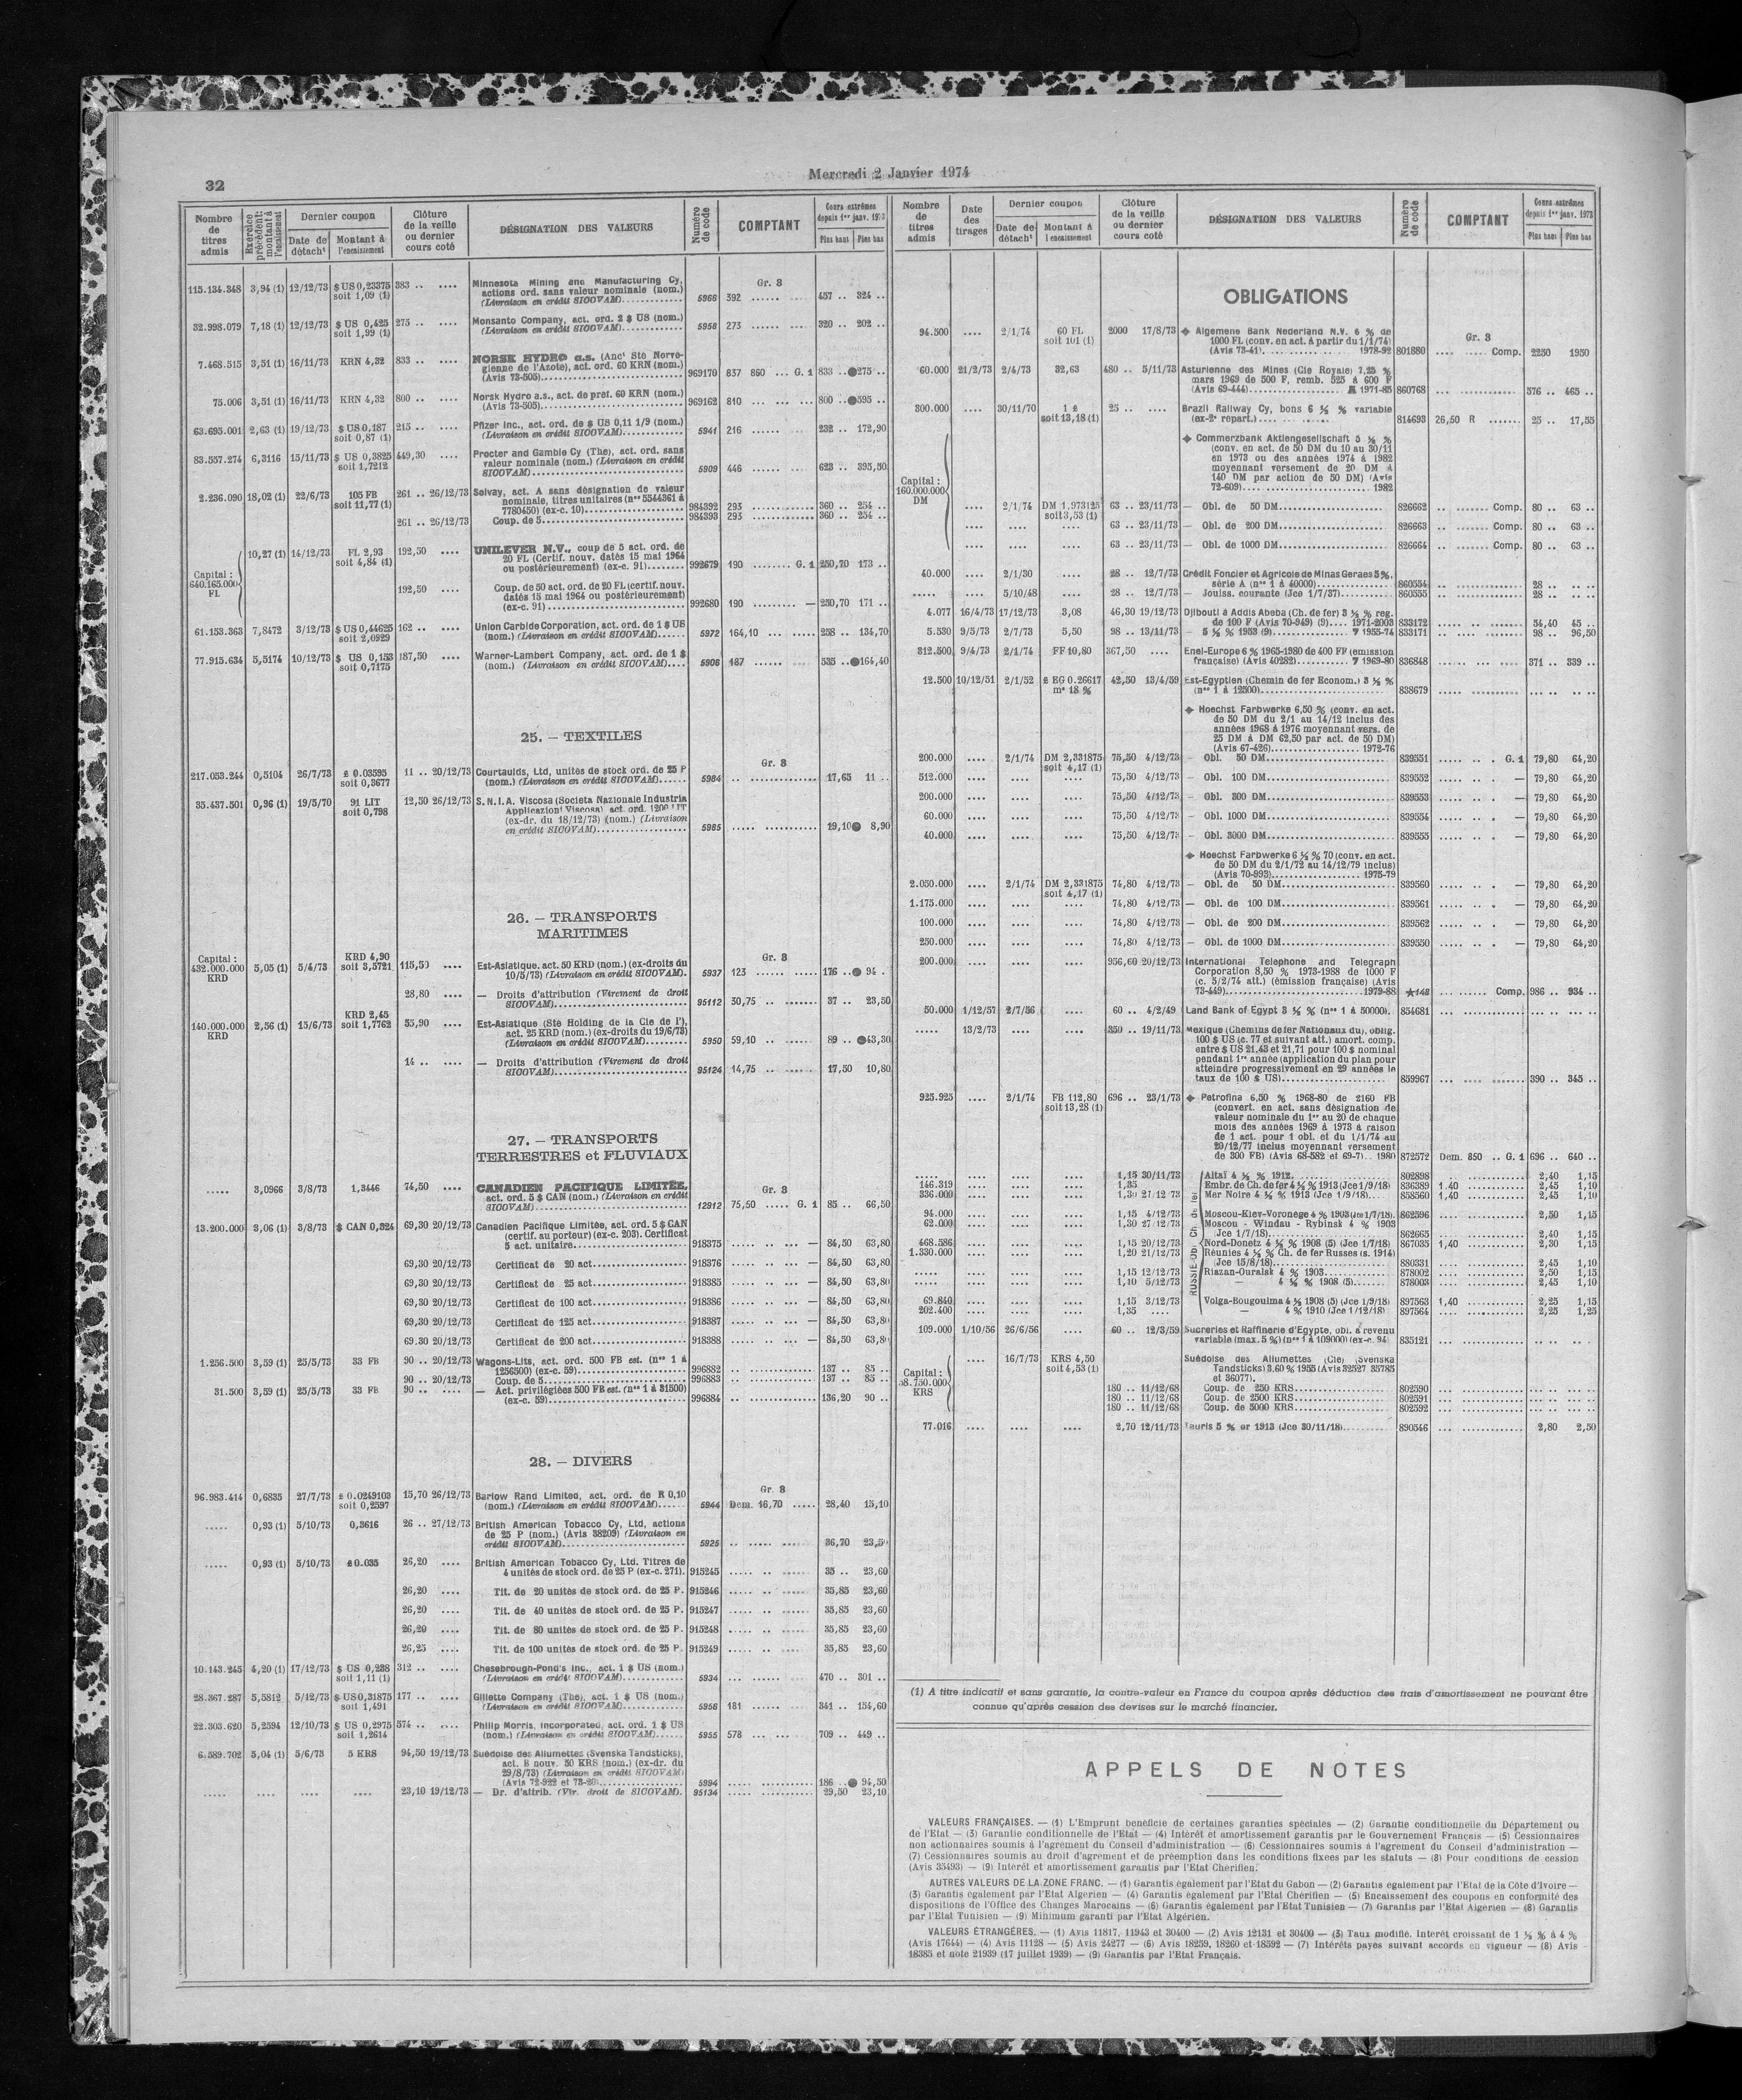 32
Mercredi 2 Janvier 1974
Nombre de titres admis | Exercice précédent: montant à l'encaissement | Dernier coupon | Date de détacht | Montant à l'encaissement | Clôture de la veille ou dernier cours coté | DÉSIGNATION DES VALEURS | Numéro de code | COMPTANT | Cours extrêmes depuis 1er janv. 1973 | Plus haut | Plus bas
115.134.348 3,94 (1) 12/12/73 $ US 0,23375 383 .. .... Minnesota Mining and Manufacturing Cy, Gr. 8
soit 1,09 (1) actions ord. sans valeur nominale (nom.)
(Livraison en crédit SICOVAM) 5966 392 457 .. 324 ..
32.998.079 7,18 (1) 12/12/73 $ US 0,425 275 .. .... Monsanto Company, act. ord. 2 $ US (nom.)
soit 1,99 (1) (Livraison en crédit SICOVAM) 5958 275 320 .. 202 ..
7.468.515 3,51 (1) 16/11/73 KRN 4,32 833 .. .... NORSK HYDRO a.s. (Anct Sté Norvé-
gienne de l'Azote), act. ord. 60 KRN (nom.)
(Avis 73-505) 969170 837 860 ... G. 1 833 ..●275 ..
75.006 3,51 (1) 16/11/73 KRN 4,32 800 .. .... Norsk Hydro a.s., act. de préf. 60 KRN (nom.)
(Avis 73-505) 969162 810 800 ..●595 ..
63.695.001 2,63 (1) 19/12/73 $ US 0,187 215 .. .... Pfizer Inc., act. ord. de $ US 0,11 1/9 (nom.)
soit 0,87 (1) (Livraison en crédit SICOVAM) 5941 216 232 .. 172,90
83.557.274 6,3116 15/11/73 $ US 0,3825 449,30 .... Procter and Gamble Cy (The), act. ord. sans
soit 1,7212 valeur nominale (nom.) (Livraison en crédit
SICOVAM) 5909 446 623 .. 395,50
2.236.090 18,02 (1) 22/6/73 105 FB 261 .. 26/12/73 Solvay, act. A sans désignation de valeur
soit 11,77 (1) nominale, titres unitaires (nos 5544361 à
7780450) (ex-c. 10) 984392 293 360 .. 254 ..
261 .. 26/12/73 Coup. de 5 984393 293 360 .. 254 ..
Capital : 640.165.000 FL 10,27 (1) 14/12/73 FL 2,93 192,50 .... UNILEVER N.V., coup de 5 act. ord. de
soit 4,84 (1) 20 FL (Certif. nouv. datés 15 mai 1964
ou postérieurement) (ex-c. 91) 992679 190 G. 1 250,70 173 ..
192,50 .... Coup. de 50 act. ord. de 20 FL (certif. nouv.
datés 15 mai 1964 ou postérieurement)
(ex-c. 91) 992680 190 — 250,70 171 ..
61.153.363 7,8472 3/12/73 $ US 0,44625 162 .. .... Union Carbide Corporation, act. ord. de 1 $ US
soit 2,0929 (nom.) (Livraison en crédit SICOVAM) 5972 164,10 258 .. 134,70
77.915.634 5,5174 10/12/73 $ US 0,153 187,50 .... Warner-Lambert Company, act. ord. de 1 $
soit 0,7175 (nom.) (Livraison en crédit SICOVAM) 5908 187 535 ..●164,40
25. — TEXTILES
Gr. 8
217.053.244 0,5104 26/7/73 £ 0.03595 11 .. 20/12/73 Courtaulds, Ltd, unités de stock ord. de 25 P
soit 0,3677 (nom.) (Livraison en crédit SICOVAM) 5984 17,65 11 ..
35.437.501 0,96 (1) 19/5/70 91 LIT 12,50 26/12/73 S.N.I.A. Viscosa (Societa Nazionale Industria
soit 0,798 Applicazioni Viscosa), act. ord. 1200 LIT
(ex-dr. du 18/12/73) (nom.) (Livraison
en crédit SICOVAM) 5985 19,10● 8,90
26. — TRANSPORTS
MARITIMES
Gr. 8
Capital : 432.000.000 KRD 5,05 (1) 5/4/73 KRD 4,90 soit 3,5721 115,50 .... Est-Asiatique. act. 50 KRD (nom.) (ex-droits du
10/5/73) (Livraison en crédit SICOVAM) 5937 123 176 ..● 94 ..
28,80 .... — Droits d'attribution (Virement de droit
SICOVAM) 95112 30,75 37 .. 23,50
140.000.000 KRD 2,56 (1) 15/6/73 KRD 2,45 soit 1,7762 55,90 .... Est-Asiatique (Sté Holding de la Cie de l'),
act. 25 KRD (nom.) (ex-droits du 19/6/73)
(Livraison en crédit SICOVAM) 5950 59,10 89 .. ●43,30
14 .. .... — Droits d'attribution (Virement de droit
SICOVAM) 95124 14,75 17,50 10,80
27. — TRANSPORTS
TERRESTRES et FLUVIAUX
Gr. 8
..... 3,0966 3/8/73 1,3446 74,50 .... CANADIEN PACIFIQUE LIMITÉE,
act. ord. 5 $ CAN (nom.) (Livraison en crédit
SICOVAM) 12912 75,50 G. 1 85 .. 66,50
13.200.000 3,06 (1) 3/8/73 $ CAN 0,324 69,30 20/12/73 Canadien Pacifique Limitée, act. ord. 5 $ CAN
(certif. au porteur) (ex-c. 203). Certificat
5 act. unitaire 918375 — 84,50 63,80
69,30 20/12/73 Certificat de 20 act. 918376 — 84,50 63,80
69,30 20/12/73 Certificat de 25 act. 918385 — 84,50 63,80
69,30 20/12/73 Certificat de 100 act. 918386 — 84,50 63,80
69,30 20/12/73 Certificat de 125 act. 918387 — 84,50 63,80
69,30 20/12/73 Certificat de 200 act. 918388 — 84,50 63,80
1.256.500 3,59 (1) 25/5/73 33 FB 90 .. 20/12/73 Wagons-Lits, act. ord. 500 FB est. (nos 1 à
1256500) (ex-c. 59) 996882 137 .. 85 ..
90 .. 20/12/73 Coup. de 5 996883 137 .. 85 ..
31.500 3,59 (1) 25/5/73 33 FB 90 .. .... — Act. privilégiées 500 FB est. (nos 1 à 31500)
(ex-c. 59) 996884 136,20 90 ..
28. — DIVERS
Gr. 8
96.983.414 0,6835 27/7/73 £ 0.0249103 15,70 26/12/73 Barlow Rand Limited, act. ord. de R 0,10
soit 0,2597 (nom.) (Livraison en crédit SICOVAM) 5944 Dem. 16,70 28,40 15,10
..... 0,93 (1) 5/10/73 0,3616 26 .. 27/12/73 British American Tobacco Cy, Ltd, actions
de 25 P (nom.) (Avis 38209) (Livraison en
crédit SICOVAM) 5925 36,70 23,50
..... 0,93 (1) 5/10/73 £ 0.035 26,20 .... British American Tobacco Cy, Ltd. Titres de
4 unités de stock ord. de 25 P (ex-c. 271). 915245 35 .. 23,60
26,20 .... Tit. de 20 unités de stock ord. de 25 P. 915246 35,85 23,60
26,20 .... Tit. de 40 unités de stock ord. de 25 P. 915247 35,85 23,60
26,20 .... Tit. de 80 unités de stock ord. de 25 P. 915248 35,85 23,60
26,25 .... Tit. de 100 unités de stock ord. de 25 P. 915249 35,85 23,60
10.143.245 4,20 (1) 17/12/73 $ US 0,238 312 .. .... Chesebrough-Pond's Inc., act. 1 $ US (nom.)
soit 1,11 (1) (Livraison en crédit SICOVAM) 5934 470 .. 301 ..
28.367.287 5,5812 5/12/73 $ US 0,31875 177 .. .... Gillette Company (The), act. 1 $ US (nom.)
soit 1,491 (Livraison en crédit SICOVAM) 5956 181 341 .. 154,60
22.303.620 5,2594 12/10/73 $ US 0,2975 574 .. .... Philip Morris, Incorporated, act. ord. 1 $ US
soit 1,2614 (nom.) (Livraison en crédit SICOVAM) 5955 578 709 .. 449 ..
6.589.702 5,04 (1) 5/6/73 5 KRS 94,50 19/12/73 Suédoise des Allumettes (Svenska Tandsticks),
act. B nouv. 50 KRS (nom.) (ex-dr. du
29/8/73) (Livraison en crédit SICOVAM)
(Avis 72-922 et 73-20) 5994 186 ..● 94,50
..... .... .... .... 23,10 19/12/73 — Dr. d'attrib. (Vir. droit de SICOVAM). 95134 29,50 23,10
Nombre de titres admis | Date des tirages | Dernier coupon | Date de détacht | Montant à l'encaissement | Clôture de la veille ou dernier cours coté | DÉSIGNATION DES VALEURS | Numéro de code | COMPTANT | Cours extrêmes depuis 1er janv. 1973 | Plus haut | Plus bas
OBLIGATIONS
Gr. 8
94.500 .... 2/1/74 60 FL 2000 17/8/73 ◆ Algemene Bank Nederland N.V. 6 % de
soit 101 (1) 1000 FL (conv. en act. à partir du 1/1/74)
(Avis 73-41) 1978-92 801880 Comp. 2250 1950
60.000 21/2/73 2/4/73 32,63 480 .. 5/11/73 Asturienne des Mines (Cie Royale) 7,25 %
mars 1969 de 500 F, remb. 525 à 600 F
(Avis 69-444) 1971-85 860768 576 .. 465 ..
300.000 .... 30/11/70 1 £ 25 .. .... Brazil Railway Cy, bons 6 ½ % variable
soit 13,18 (1) (ex-2e répart.) 814693 26,50 R 25 .. 17,55
◆ Commerzbank Aktiengesellschaft 5 ½ %
(conv. en act. de 50 DM du 10 au 30/11
en 1973 ou des années 1974 à 1982
moyennant versement de 20 DM à
140 DM par action de 50 DM) (Avis
72-609) 1982
Capital : 160.000.000 DM .... 2/1/74 DM 1,973125 63 .. 23/11/73 — Obl. de 50 DM 826662 Comp. 80 .. 63 ..
soit 3,53 (1)
.... .... 63 .. 23/11/73 — Obl. de 200 DM 826663 Comp. 80 .. 63 ..
.... .... .... 63 .. 23/11/73 — Obl. de 1000 DM 826664 Comp. 80 .. 63 ..
40.000 .... 2/1/30 .... 28 .. 12/7/73 Crédit Foncier et Agricole de Minas Geraes 5 %,
série A (nos 1 à 40000) 860554 28 .. .. ..
..... 5/10/48 .... 28 .. 12/7/73 — Jouiss. courante (Jce 1/7/37) 860555 28 .. .. ..
4.077 16/4/73 17/12/73 3,08 46,30 19/12/73 Djibouti à Addis Abeba (Ch. de fer) 3 ½ % reg.
de 100 F (Avis 70-949) (9) 1971-2003 833172 54,40 45 ..
5.530 9/5/73 2/7/73 5,50 98 .. 13/11/73 — 5 ½ % 1953 (9) 1955-74 833171 98 .. 96,50
312.500 9/4/73 2/1/74 FF 10,80 367,50 .... Enel-Europe 6 % 1965-1980 de 400 FF (émission
française) (Avis 40282) 1969-80 836848 371 .. 339 ..
12.500 10/12/51 2/1/52 £ EG 0.26617 42,50 13/4/59 Est-Egyptien (Chemin de fer Econom.) 3 ½ %
ms 18 % (nos 1 à 12500) 838679
◆ Hoechst Farbwerke 6,50 % (conv. en act.
de 50 DM du 2/1 au 14/12 inclus des
années 1968 à 1976 moyennant vers. de
25 DM à DM 62,50 par act. de 50 DM)
(Avis 67-426) 1972-76
200.000 .... 2/1/74 DM 2,331875 75,50 4/12/73 — Obl. 50 DM 839551 G. 1 79,80 64,20
soit 4,17 (1)
512.000 .... .... .... 75,50 4/12/73 — Obl. 100 DM 839552 — 79,80 64,20
200.000 .... .... .... 75,50 4/12/73 — Obl. 300 DM 839553 — 79,80 64,20
60.000 .... .... .... 75,50 4/12/73 — Obl. 1000 DM 839554 — 79,80 64,20
40.000 .... .... .... 75,50 4/12/73 — Obl. 3000 DM 839555 — 79,80 64,20
◆ Hoechst Farbwerke 6 ½ % 70 (conv. en act.
de 50 DM du 2/1/72 au 14/12/79 inclus)
(Avis 70-893) 1975-79
2.050.000 .... 2/1/74 DM 2,331875 74,80 4/12/73 — Obl. de 50 DM 839560 — 79,80 64,20
soit 4,17 (1)
1.175.000 .... .... .... 74,80 4/12/73 — Obl. de 100 DM 839561 — 79,80 64,20
100.000 .... .... .... 74,80 4/12/73 — Obl. de 200 DM 839562 — 79,80 64,20
250.000 .... .... .... 74,80 4/12/73 — Obl. de 1000 DM 839550 — 79,80 64,20
200.000 .... .... .... 956,60 20/12/73 International Telephone and Telegraph
Corporation 8,50 % 1973-1988 de 1000 F
(c. 5/2/74 att.) (émission française) (Avis
73-449) 1979-88 ★148 Comp. 986 .. 934 ..
50.000 1/12/57 2/7/56 .... 60 .. 4/2/49 Land Bank of Egypt 3 ½ % (nos 1 à 50000). 854681
..... 13/2/73 .... .... 350 .. 19/11/73 Mexique (Chemins de fer Nationaux du), oblig.
100 $ US (c. 77 et suivant att.) amort. comp.
entre $ US 21,43 et 21,71 pour 100 $ nominal
pendant 1re année (application du plan pour
atteindre progressivement en 29 années le
taux de 100 $ US) 859967 390 .. 345 ..
925.925 .... 2/1/74 FB 112,80 696 .. 23/1/73 ◆ Petrofina 6,50 % 1968-80 de 2160 FB
soit 13,28 (1) (convert. en act. sans désignation de
valeur nominale du 1er au 20 de chaque
mois des années 1969 à 1973 à raison
de 1 act. pour 1 obl. et du 1/1/74 au
20/12/77 inclus moyennant versement
de 300 FB) (Avis 68-582 et 69-7) 1980 872572 Dem. 850 .. G. 1 696 .. 640 ..
RUSSIE Ob. Ch. de fer
..... .... .... .... 1,15 30/11/73 Altaï 4 ½ % 1912 802898 2,40 1,15
146.319 .... .... .... 1,35 Embr. de Ch. de fer 4 ½ % 1913 (Jce 1/9/18) 836389 1,40 2,45 1,10
336.000 .... .... .... 1,30 27/12/73 Mer Noire 4 ½ % 1913 (Jce 1/9/18) 858560 1,40 2,45 1,10
94.000 .... .... .... 1,15 4/12/73 Moscou-Kiev-Voronège 4 % 1903 (Jce 1/7/18). 862596 2,50 1,15
62.000 .... .... .... 1,30 27/12/73 Moscou - Windau - Rybinsk 4 % 1903
(Jce 1/7/18) 862665 2,40 1,15
468.586 .... .... .... 1,15 20/12/73 Nord-Donetz 4 ½ % 1908 (5) (Jce 1/7/18) 867035 1,40 2,30 1,15
1.330.000 .... .... .... 1,20 21/12/73 Réunies 4 ½ % Ch. de fer Russes (s. 1914)
(Jce 15/8/18) 880331 2,45 1,10
..... .... .... .... 1,15 12/12/73 Riazan-Ouralsk 4 % 1903 878002 2,50 1,15
..... .... .... .... 1,10 5/12/73 — 4 ½ % 1908 (5) 878003 2,45 1,10
69.840 .... .... .... 1,15 3/12/73 Volga-Bougoulma 4 ½ 1908 (5) (Jce 1/9/18) 897563 1,40 2,25 1,15
202.400 .... .... .... 1,35 .... — 4 % 1910 (Jce 1/12/18) 897564 2,25 1,25
109.000 1/10/56 26/6/56 .... 60 .. 12/3/59 Sucreries et Raffinerie d'Egypte, obl. à revenu
variable (max. 5 %) (nos 1 à 109000) (ex-c. 94) 835121
Capital : 58.750.000 KRS .... 16/7/73 KRS 4,50 Suédoise des Allumettes (Cie) (Svenska
soit 4,53 (1) Tandsticks) 3,60 % 1955 (Avis 32527 35785
et 36077).
180 .. 11/12/68 Coup. de 250 KRS 802590
180 .. 11/12/68 Coup. de 2500 KRS 802591
180 .. 11/12/68 Coup. de 5000 KRS 802592
77.016 .... .... .... 2,70 12/11/73 Tauris 5 % or 1913 (Jce 30/11/18) 890546 2,80 2,50
(1) A titre indicatif et sans garantie, la contre-valeur en France du coupon après déduction des frais d'amortissement ne pouvant être
connue qu'après cession des devises sur le marché financier.
APPELS DE NOTES
VALEURS FRANÇAISES. — (1) L'Emprunt bénéficie de certaines garanties spéciales — (2) Garantie conditionnelle du Département ou
de l'Etat — (3) Garantie conditionnelle de l'Etat — (4) Intérêt et amortissement garantis par le Gouvernement Français — (5) Cessionnaires
non actionnaires soumis à l'agrément du Conseil d'administration — (6) Cessionnaires soumis à l'agrément du Conseil d'administration —
(7) Cessionnaires soumis au droit d'agrément et de préemption dans les conditions fixées par les statuts — (8) Pour conditions de cession
(Avis 35493) — (9) Intérêt et amortissement garantis par l'Etat Chérifien.
AUTRES VALEURS DE LA ZONE FRANC. — (1) Garantis également par l'Etat du Gabon — (2) Garantis également par l'Etat de la Côte d'Ivoire —
(3) Garantis également par l'Etat Algérien — (4) Garantis également par l'Etat Chérifien — (5) Encaissement des coupons en conformité des
dispositions de l'Office des Changes Marocains — (6) Garantis également par l'Etat Tunisien — (7) Garantis par l'Etat Algérien — (8) Garantis
par l'Etat Tunisien — (9) Minimum garanti par l'Etat Algérien.
VALEURS ÉTRANGÈRES. — (1) Avis 11817, 11943 et 30400 — (2) Avis 12131 et 30400 — (3) Taux modifié. Intérêt croissant de 1 ½ % à 4 %
(Avis 17644) — (4) Avis 11128 — (5) Avis 24277 — (6) Avis 18259, 18260 et 18592 — (7) Intérêts payés suivant accords en vigueur — (8) Avis
18385 et note 21939 (17 juillet 1939) — (9) Garantis par l'Etat Français.